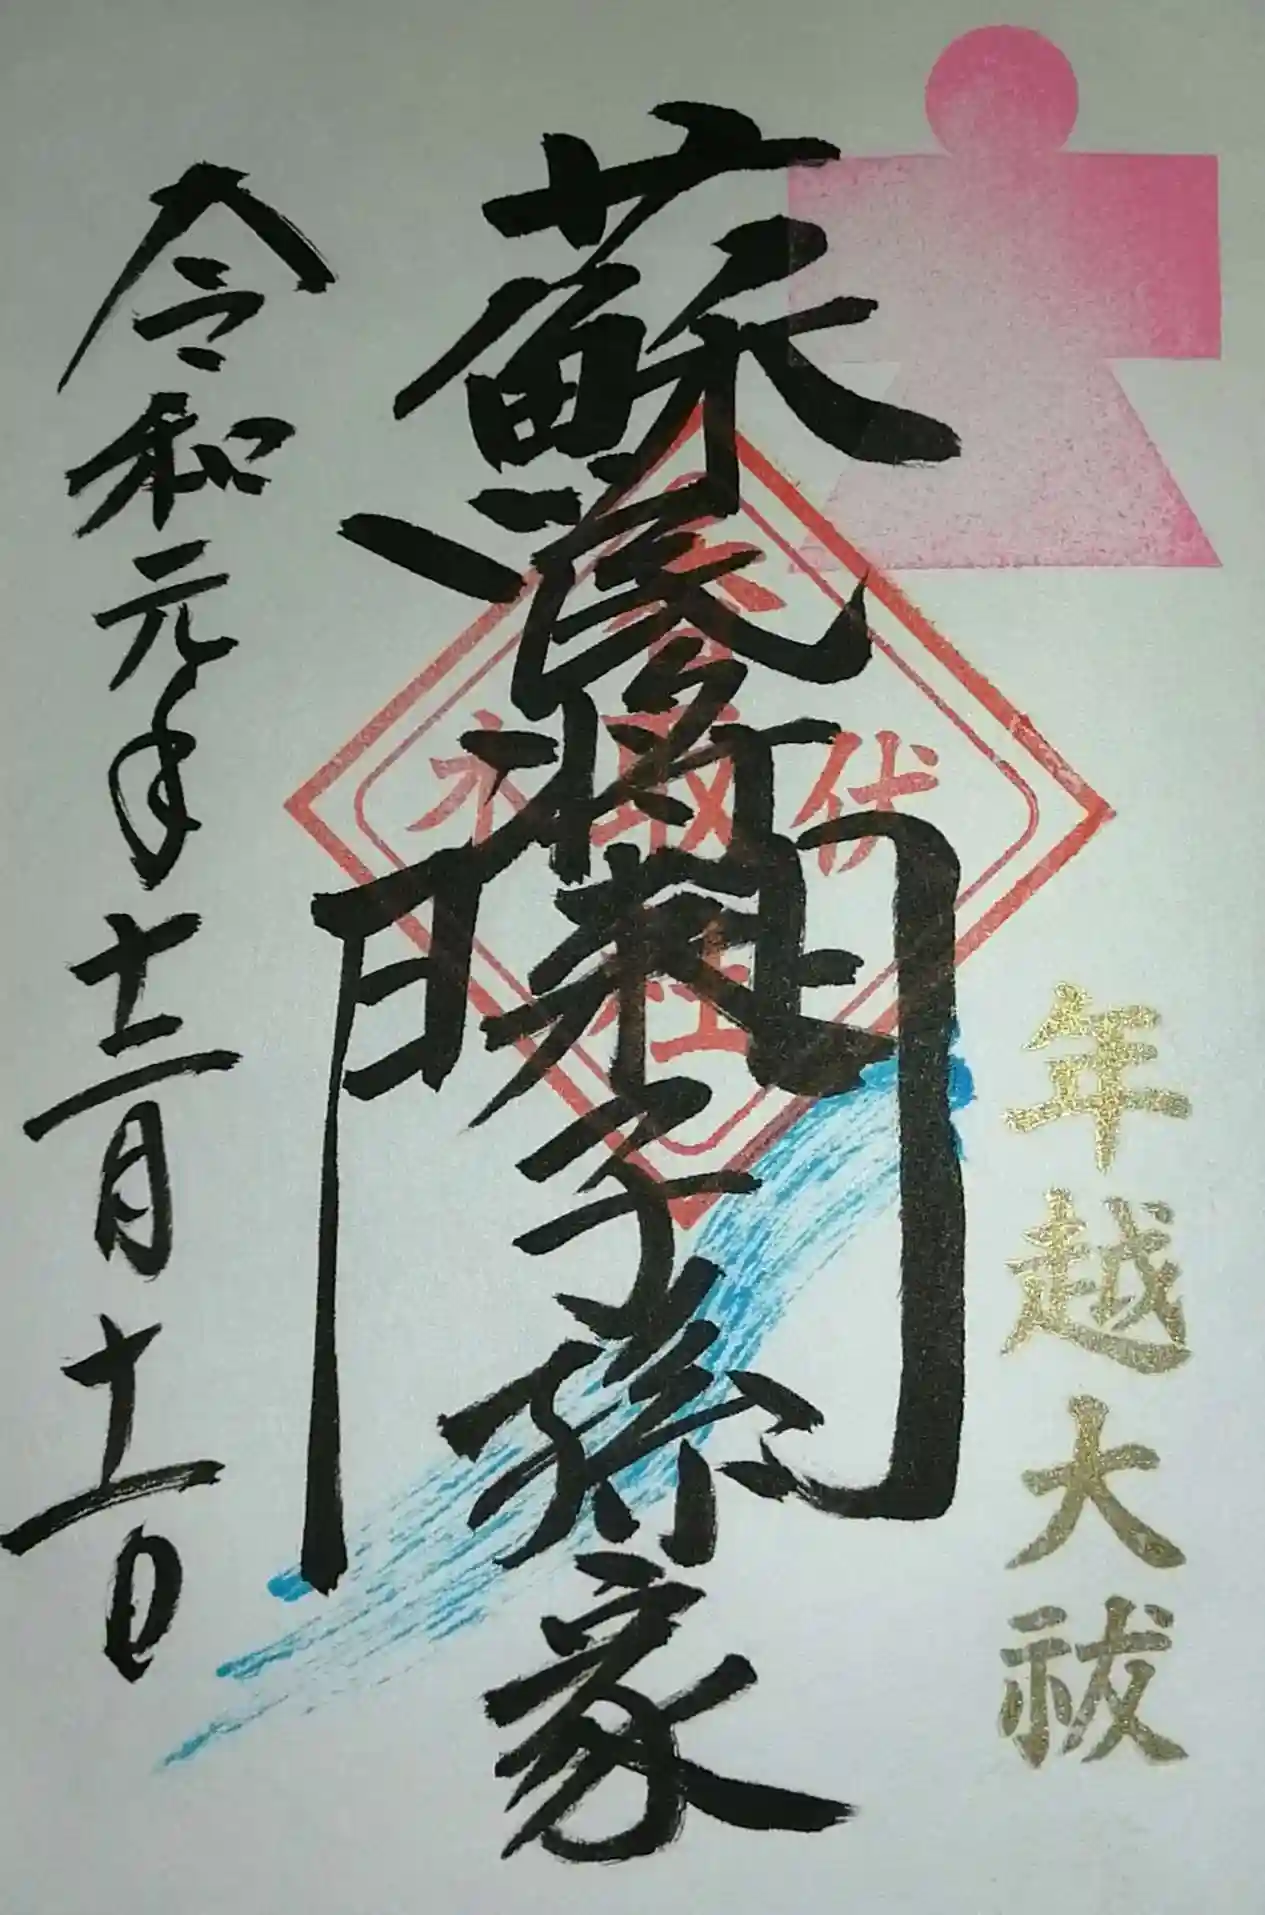 年越大祓
蘇民将来子孫家門
伏木
香取社
令和元年十二月十一日